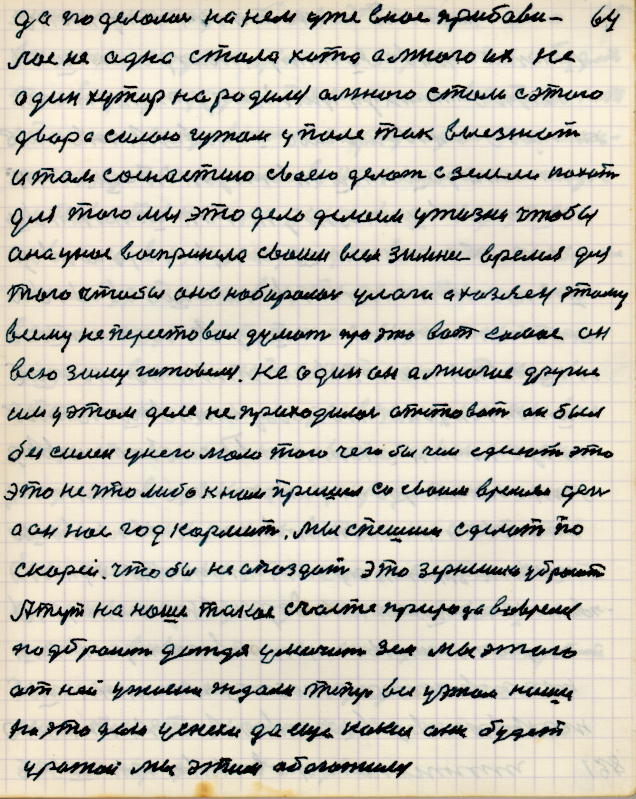 да поделолсь на нем уже вное прибави- 64
лосе не адна стала хата а много их не
один хутир народился а много стало с этого
двора силаю гужам у поле так выезжат
и там соснастию своею делат с земли похат
для того мы это дело делаем у жизни чтобы
ана у нас восприняла своим всем зимнее время для
того чтобы ано набиралось улаги а хозяен этому
всему не перестовал думат про это вот самое он
всю зиму готовился. не один он а многие другие
им у этом деле не приходилось отстават он был
бессилен у него мало того чего бы чем сделат это
это не что либо к нам пришел со своим временем ден
а он нас год кормит. мы спешим сделат по
скорей. чтобы не апаздат это зернышко убрасит
А тут на наше такое счастье природа вовремя
подбросит дождя умочит зем мы этого
от ней ужасна ждали типер все у том наши
на это дело успехи да еще какие они будут
урожай мы этим абагатимся